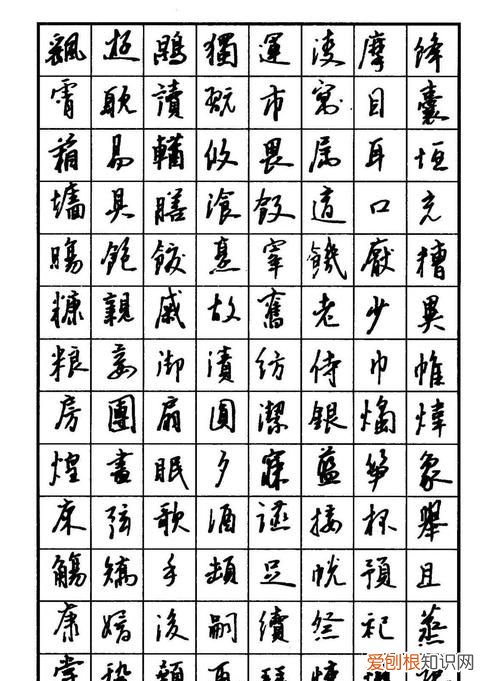 颻遊鵾獨運凌摩絳
霄耽讀翫市寓目囊
箱易輶攸畏屬耳垣
墻具膳飡飯適口充
腸飽飫烹宰饑厭糟
糠親戚故舊老少異
粮妾御績紡侍巾帷
房團扇圓潔銀燭煒
煌晝眠夕寐藍筍象
床弦歌酒讌接杯舉
觴矯手頓足悅豫且
康嫡後嗣續祭祀蒸
爱刨根知识网